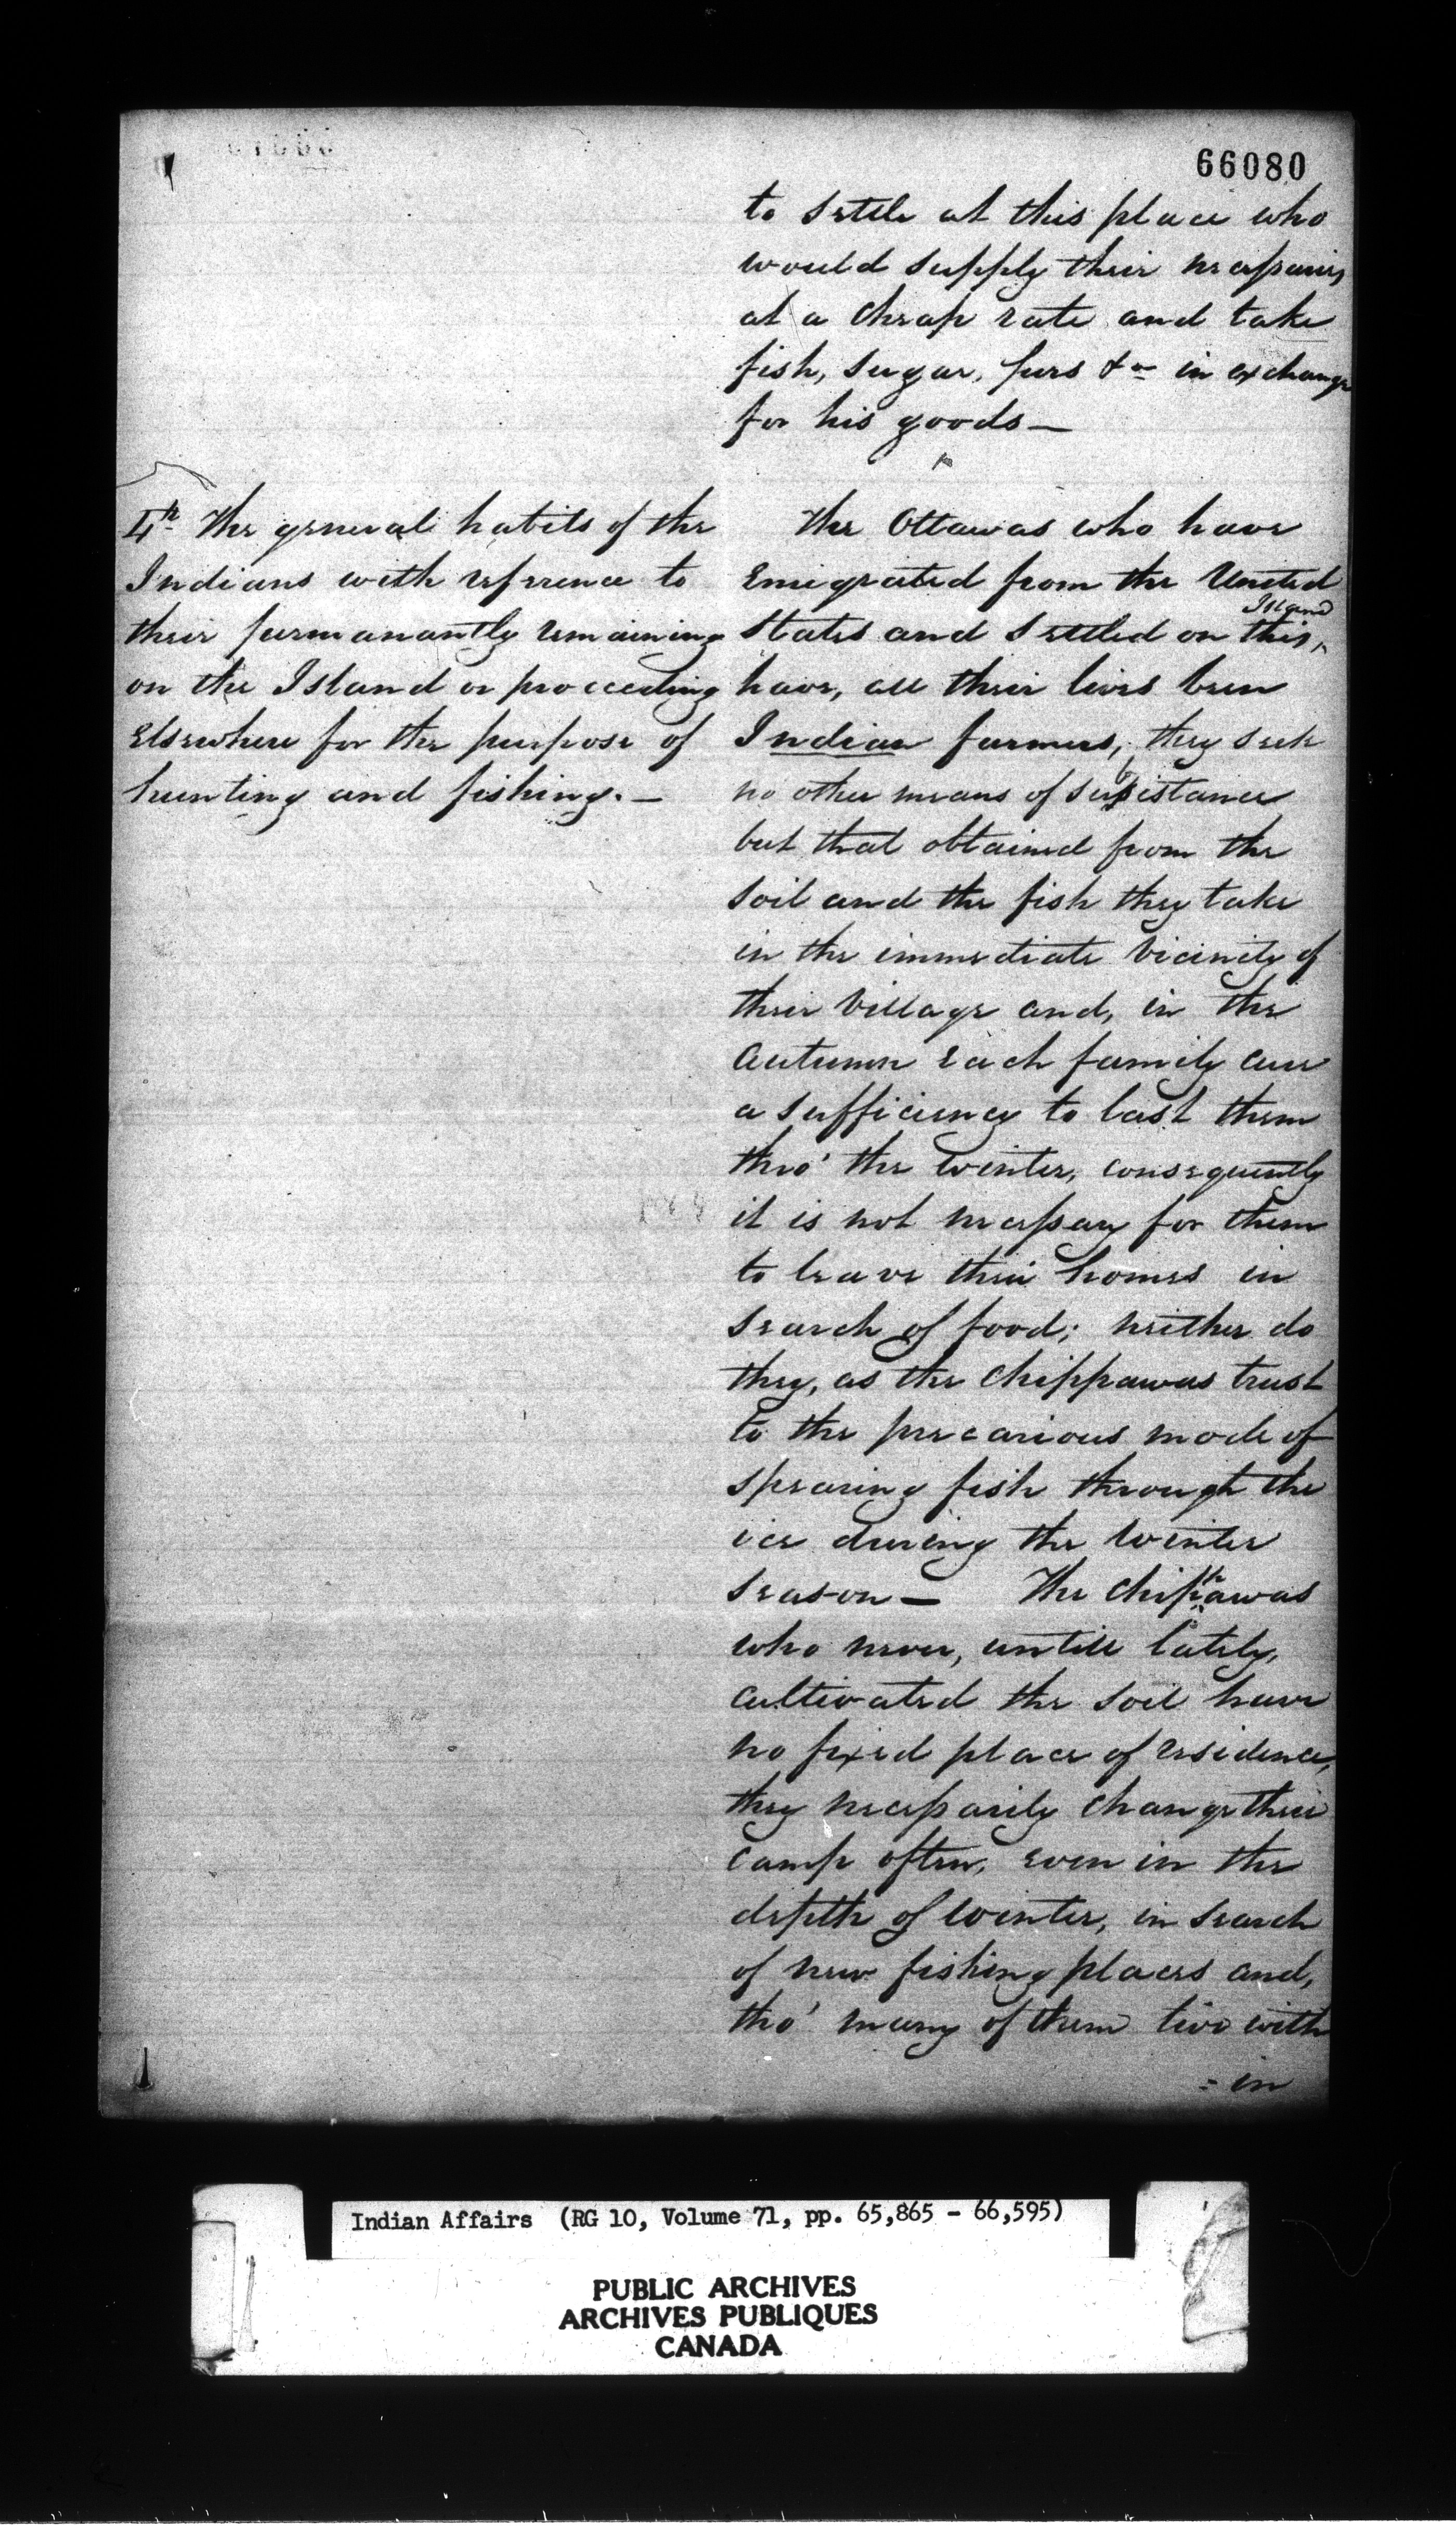 66080
to settle at this place who
would supply their necessaries
at a cheap rate and take
fish, sugar, furs &c in exchange
for his goods —
4th The general habits of the
Indians with reference to
their permanantly remaining
on the Island or proceeding
elsewhere for the purpose of
hunting and fishing. —
The Ottawas who have
Emigrated from the United
Island
States and settled on this,
have, all their lives been
Indian farmers, they seek
no other means of subsistance
but that obtained from the
soil and the fish they take
in the immediate vicinity of
their Village and, in the
Autumn each family cure
a sufficiency to last them
thro' the winter, consequently
it is not necessary for them
to leave their homes in
search of food; neither do
they, as the Chippawas trust
to the precarious mode of
spearing fish through the
ice during the winter
season — The Chippawas
who never, untill lately,
cultivated the soil have
no fixed place of residence,
they necessarily change their
camp often, even in the
depth of winter, in search
of new fishing places and,
tho' many of them live with
= in
Indian Affairs (RG 10, Volume 71, pp. 65,865 - 66,595)
PUBLIC ARCHIVES
ARCHIVES PUBLIQUES
CANADA